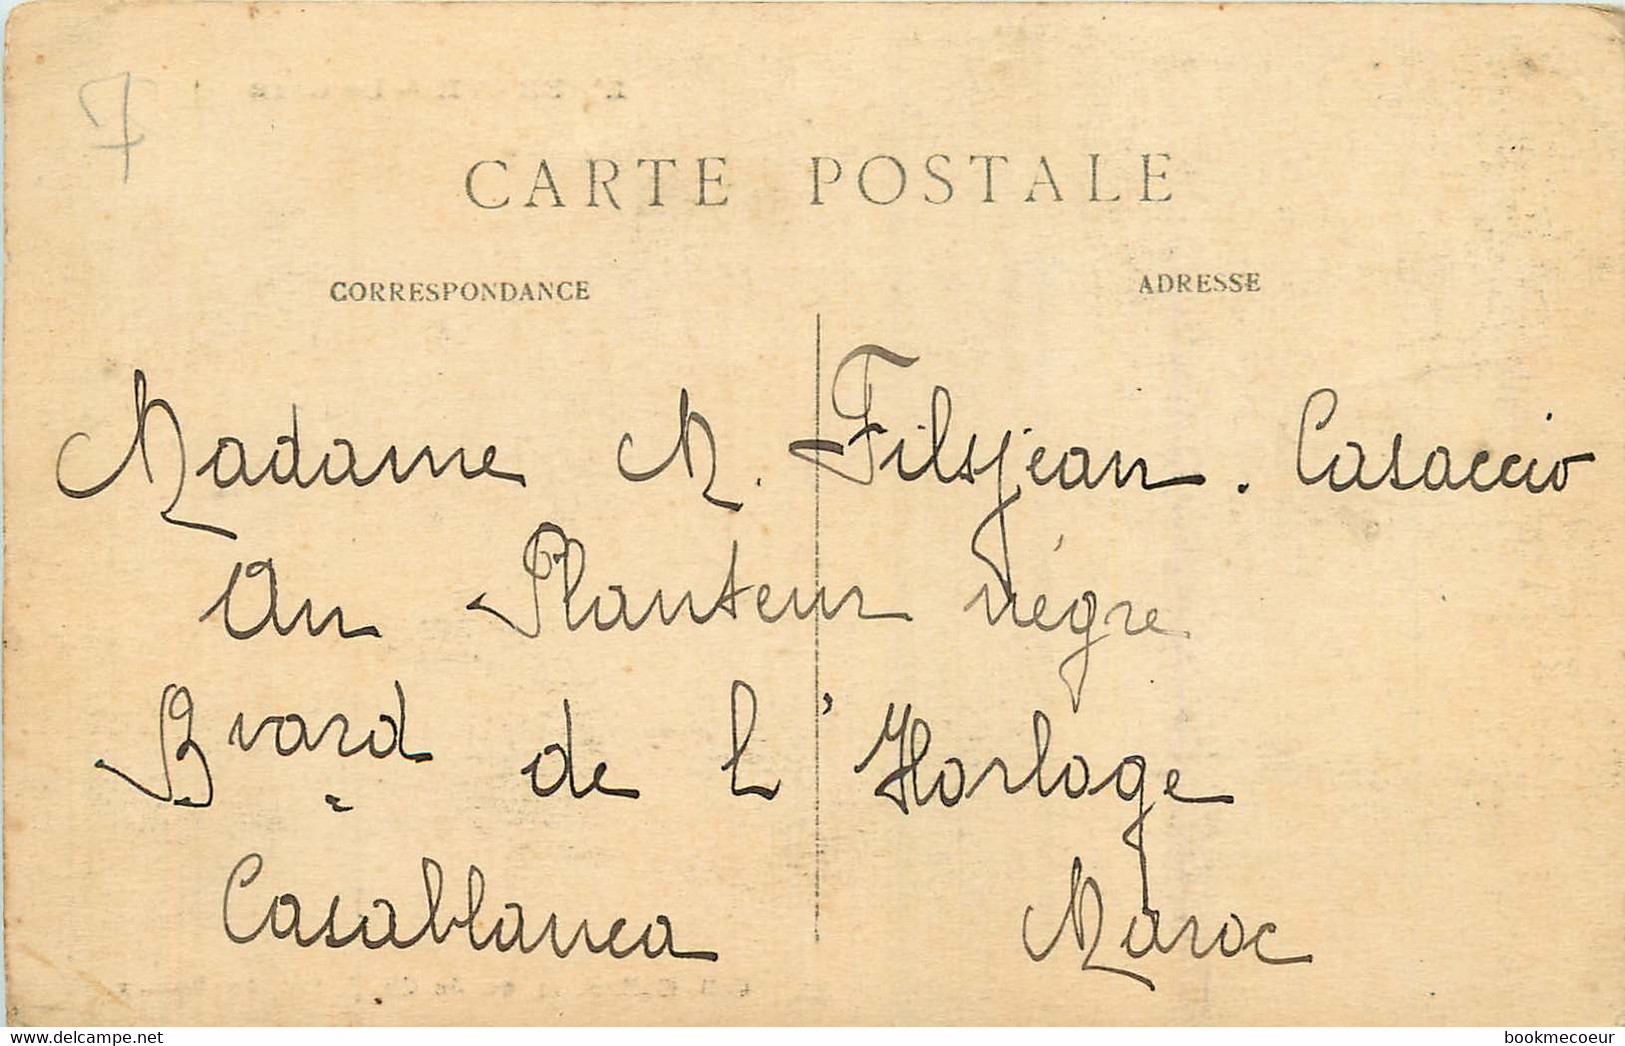 7
CARTE POSTALE
CORRESPONDANCE
ADRESSE
Madame M. Filsjean. Casaccio
Au Planteur nègre
Bvard de l'Horloge
Casablanca Maroc
www.delcampe.net
bookmecoeur